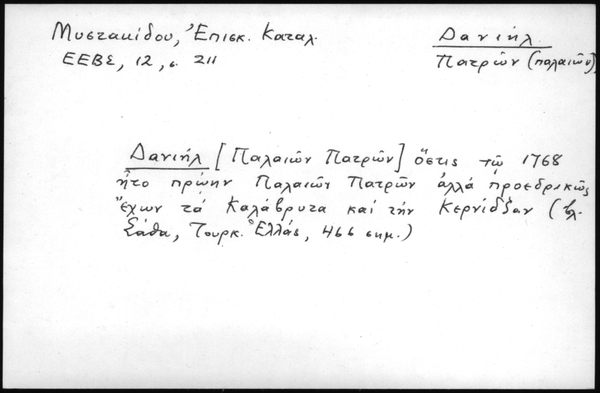 Μυστακίδου, Ἐπισκ. Καταλ.
ΕΕΒΣ, 12, σ. 211
Δανιήλ
Πατρῶν (παλαιῶν)
Δανιήλ [Παλαιῶν Πατρῶν] ὅστις τῷ 1768
ἦτο πρώην Παλαιῶν Πατρῶν ἀλλά προεδρικῶς
ἔχων τά Καλάβρυτα καί τήν Κερνίδσαν (βλ.
Σάθα, Τουρκ. Ἑλλάς, 466 σημ.)